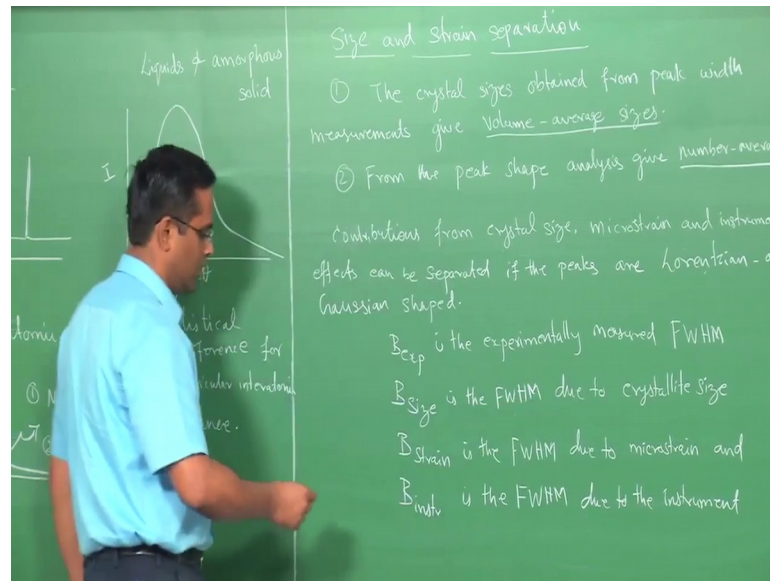 Liquids & amorphous
solid
I
istical
ference for
icular interatomic
ence.
①
Size and strain separation
① The crystal sizes obtained from peak width
measurements give volume-average sizes.
② From the peak shape analysis give number-aver
Contributions from crystal size, microstrain and instrume
effects can be separated if the peaks are Lorentzian-
Gaussian shaped.
Bexp is the experimentally measured FWHM
Bsize is the FWHM due to crystallite size
Bstrain is the FWHM due to microstrain and
Binstr is the FWHM due to the instrument